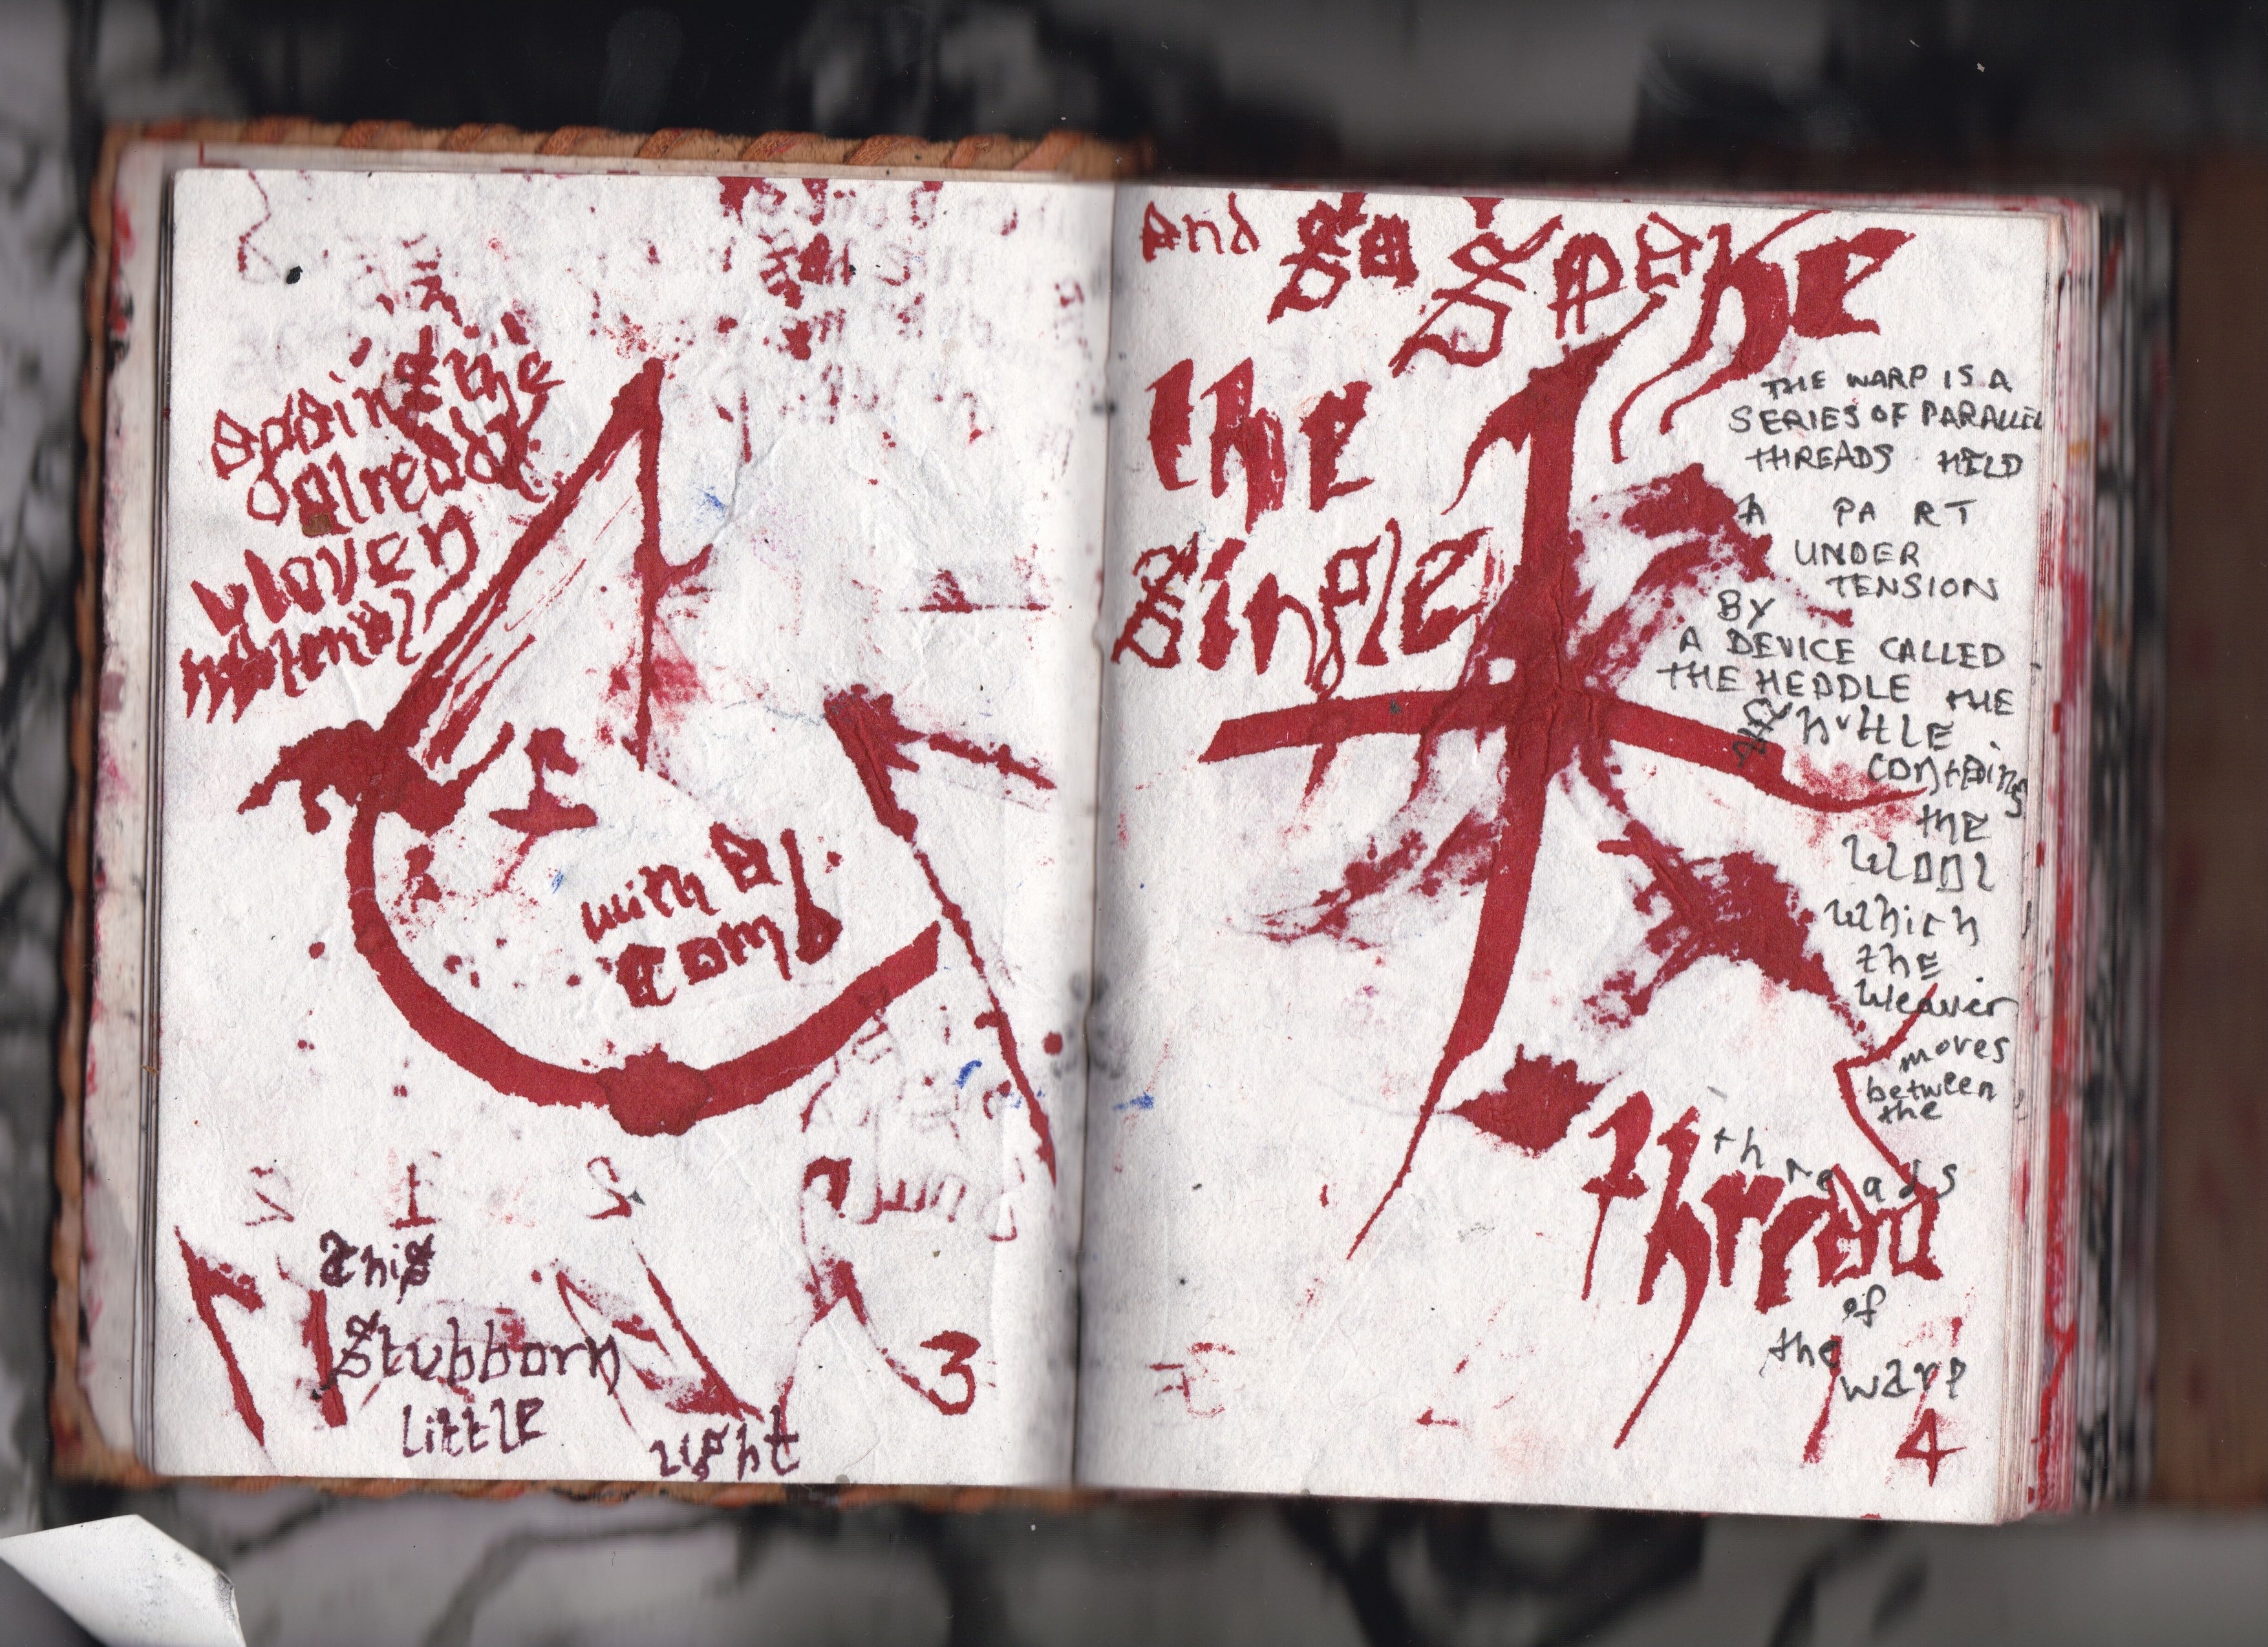 against the
alreddy
woven
material
with a
comb
this
stubborn
little
light
3
and so spake
the
single
thread
THE WARP IS A
SERIES OF PARALLEL
THREADS HELD
A PA RT
UNDER
TENSION
BY
A DEVICE CALLED
THE HEDDLE THE
shuttle
contains
the
wool
which
the
weaver
moves
between
the
threads
of
the
warp
4